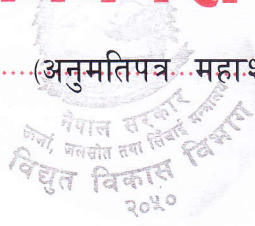 (अनुमतिपत्र महाश
नेपाल सरकार
ऊर्जा, जलस्रोत तथा सिंचाई मन्त्रालय
विद्युत विकास विभाग
२०५०